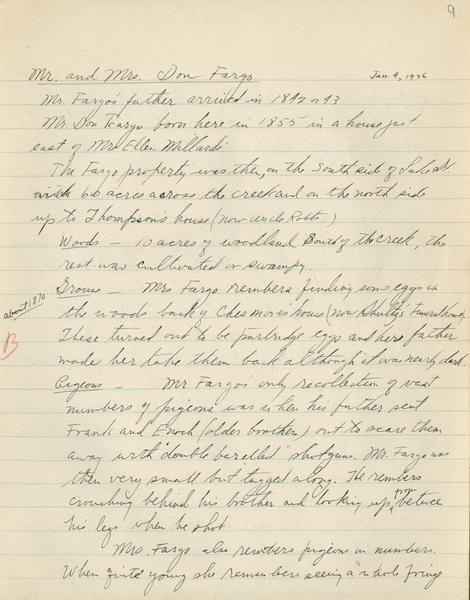 9
Mr. and Mrs. Don Fargo
Jan. 4, 1936
Mr. Fargo's father arrived in 1842 or 43
Mr Don Fargo born here in 1855 in a house just
east of Mrs Ellen Millard's
The Fargo property was then, on the South side of Lake St.
with 60 acres across the creek and on the north side
up to Thompson's house (now uncle Robts.)
Woods — 10 acres of woodland South of the creek, the
rest was cultivated or swampy
Grouse — Mrs Fargo rembers finding some eggs in
about 1870
the woods back of Chesmores house (now Shultz's Funeral home)
These turned out to be partridge eggs and her father
B
made her take them back although it was nearly dark.
Pigeons — Mr Fargos only recollection of vast
numbers of pigeons was when his father sent
Frank and Enoch (older brothers) out to scare them
away with "double barelled" shotguns. Mr. Fargo was
then very small but tagged along. He rembers
crouching behind his brother and looking up from betwen
his legs when he shot
Mrs. Fargo also rembers pigeons in numbers.
When quite young she remembers seeing a "whole fringe